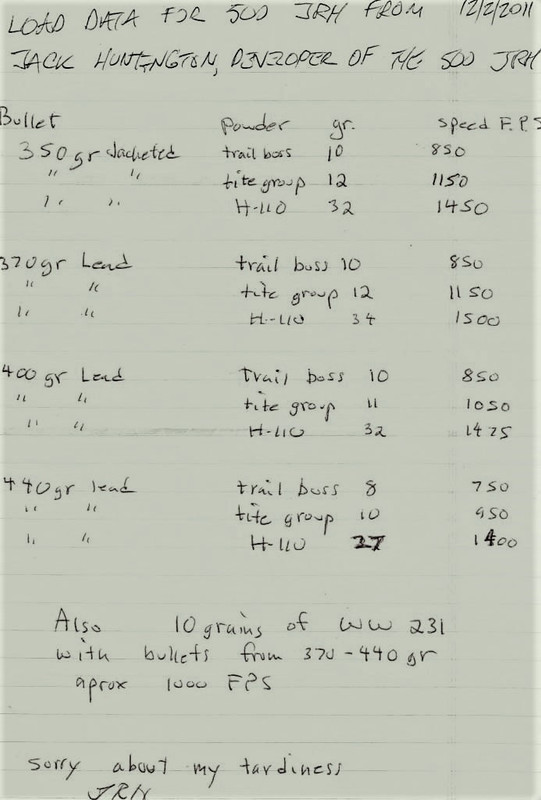 LOAD DATA FOR 500 JRH FROM 12/2/2011
JACK HUNTINGTON, DEVELOPER OF THE 500 JRH
Bullet powder gr. speed F.P.S
350gr Jacketed trail boss 10 850
" " tite group 12 1150
" " H-110 32 1450
370gr Lead trail boss 10 850
" " tite group 12 1150
" " H-110 34 1500
400 gr Lead trail boss 10 850
" " tite group 11 1050
" " H-110 32 1425
440gr lead trail boss 8 750
" " tite group 10 950
" " H-110 1400
Also 10 grains of WW 231
with bullets from 370-440 gr
aprox 1000 FPS
sorry about my tardiness
JRH